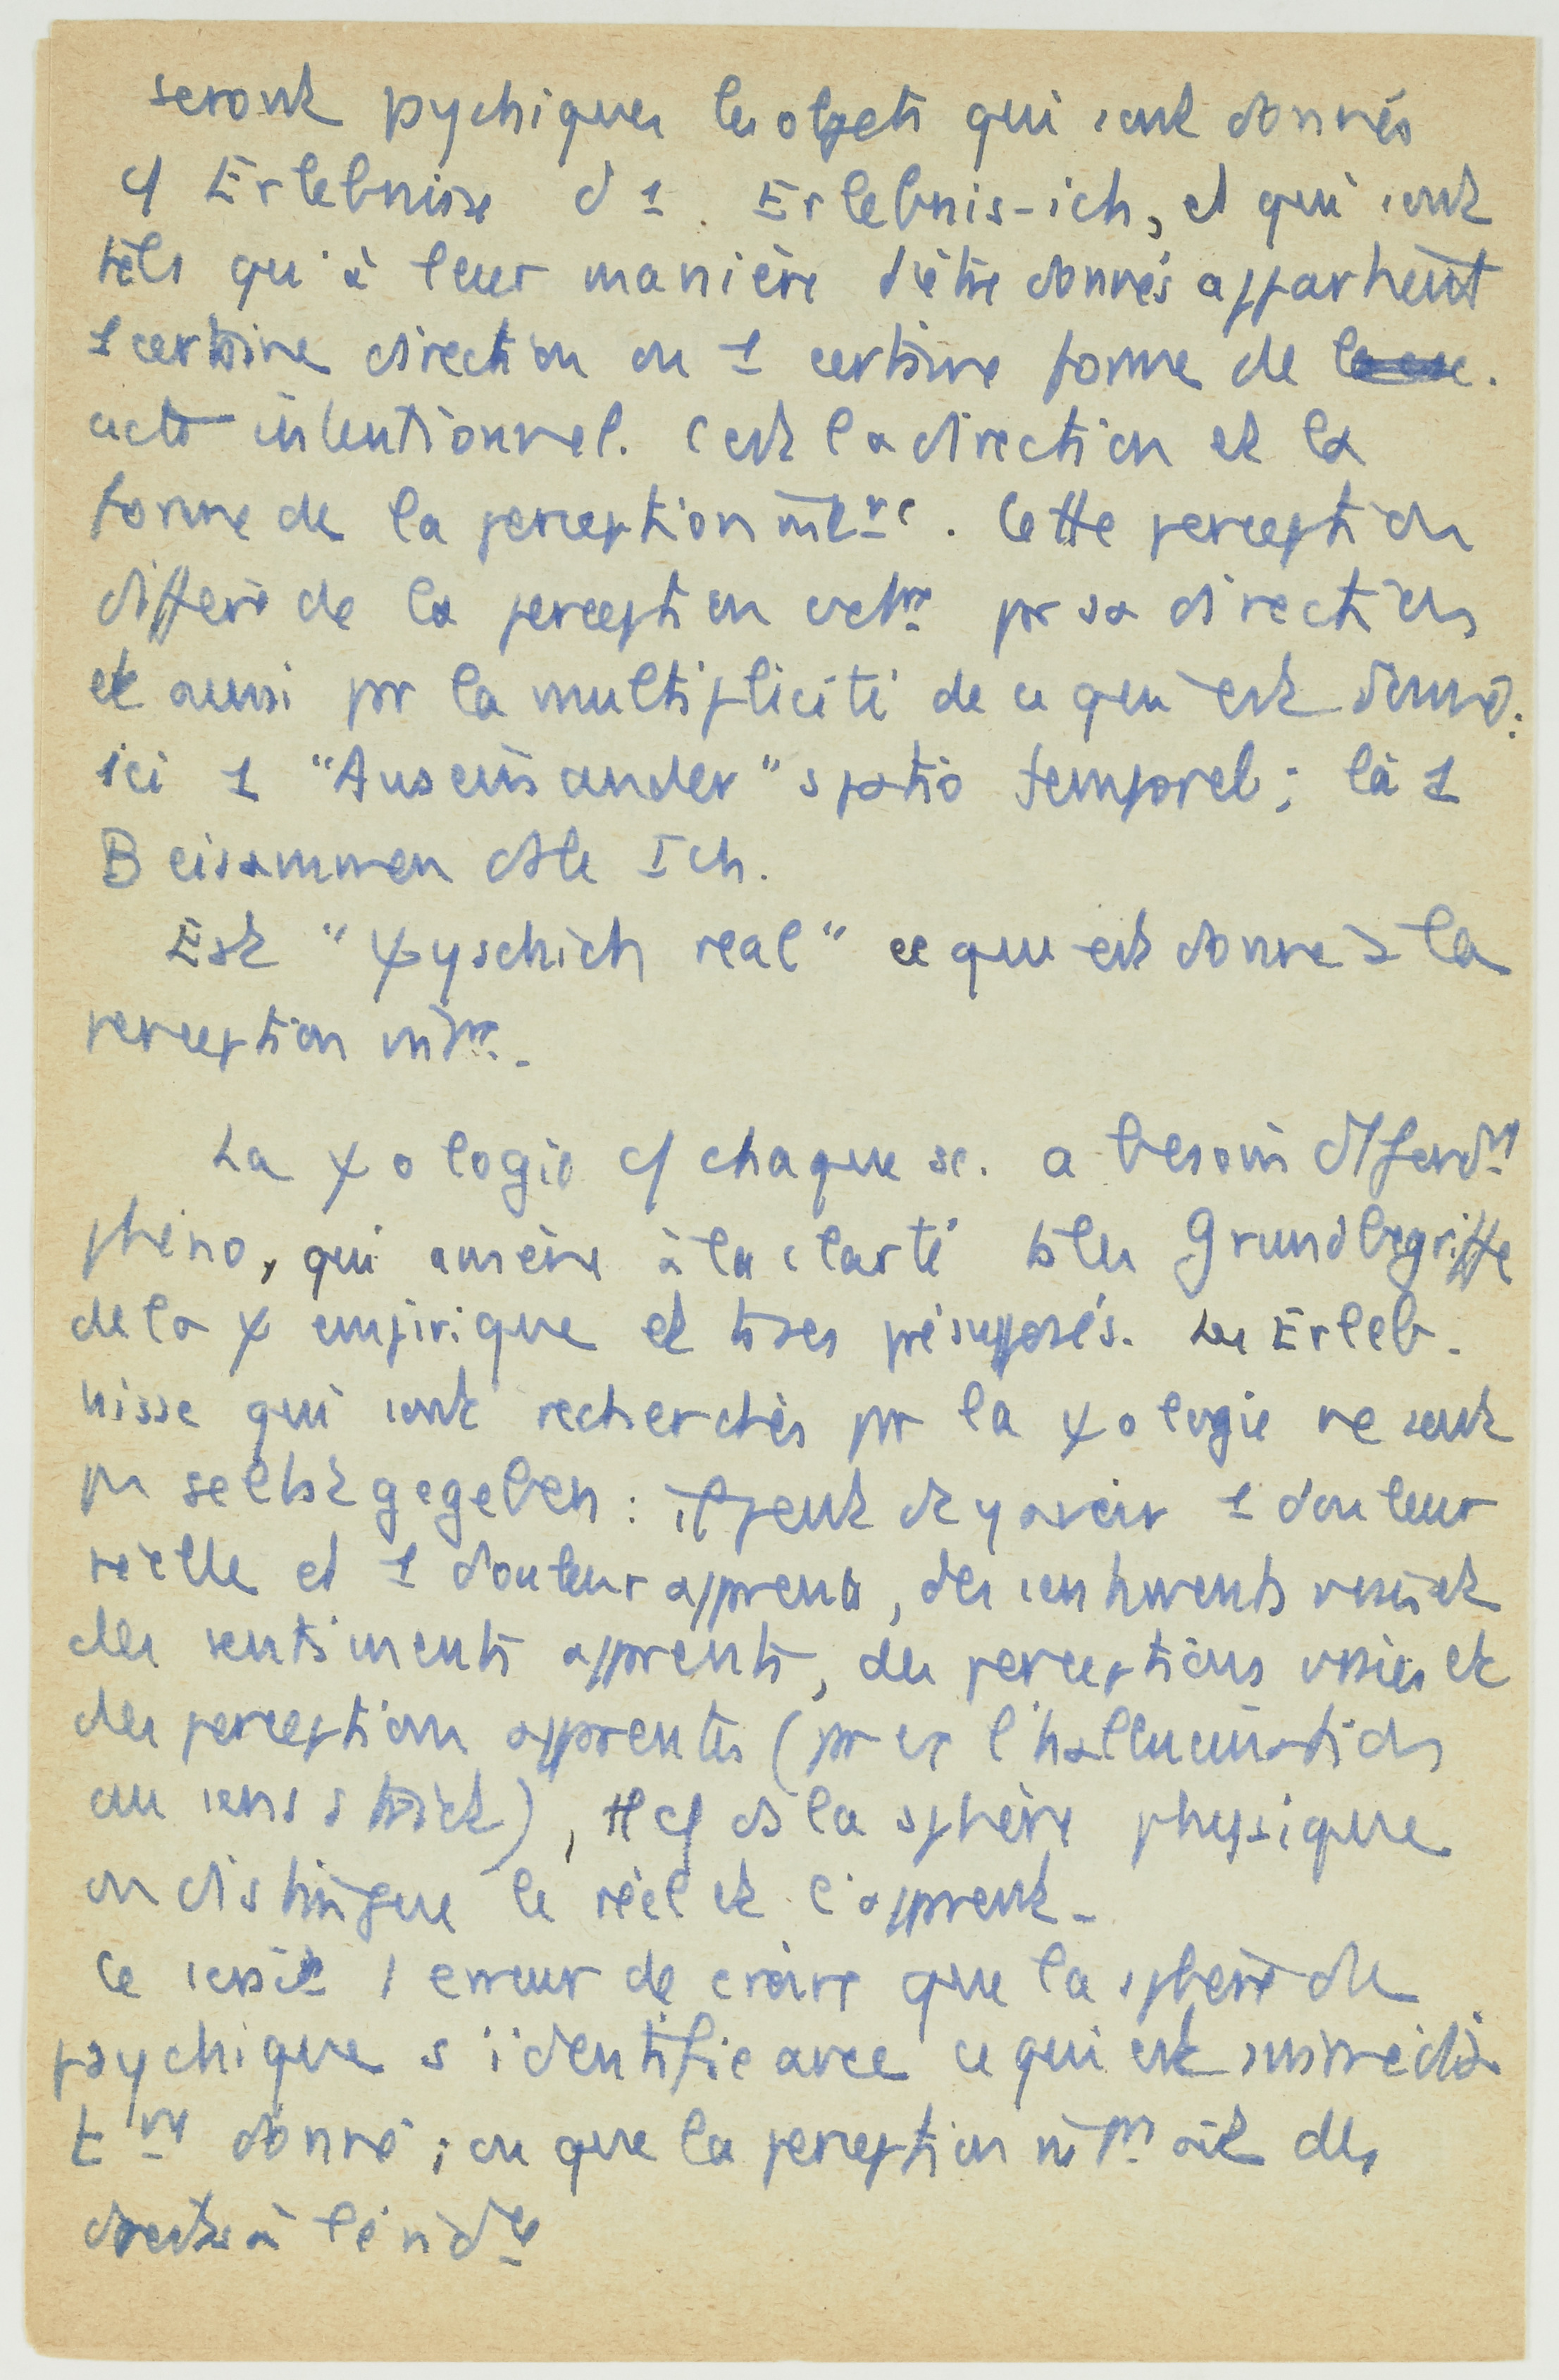 seront psychiques les objets qui sont donnés
cf Erlebnisse d 1. Erlebnis-ich, et qui sont
tels qu'à leur manière d'être donnés appartient
1 certaine direction ou 1 certaine forme de
acte intentionnel. C'est la direction et la
forme de la perception int^re. Cette perception
diffère de la perception ext^re pr sa direction
et aussi pr la multiplicité de ce qui est donné:
ici 1 "Auseinander" spatio temporel; là 1
Beisammen ds le Ich.
Est "psychich real" ce qui est donné à la
perception int^re.
La ψologie cf chaque sc. a besoin d'1 fond^mt
phéno, qui amène à la clarté ts les Grundbegriffe
de la ψ empirique et ts ses présupposés. Les Erleb-
nisse qui sont recherchés pr la ψologie ne sont
pas selbst gegeben: il peut y avoir 1 douleur
réelle et 1 douleur apprente, des sentiments vrais et
des sentiments apprents, des perceptions vraies et
des perceptions apprentes (pr ex l'hallucination
au sens strict), tt cf ds la sphère physique
on distingue le réel et l'apprent.
Ce serait 1 erreur de croire que la sphère du
psychique s'identifie avec ce qui est immédia
t^mt donné; ou que la perception int^re ait des
droits à l'évid^ce